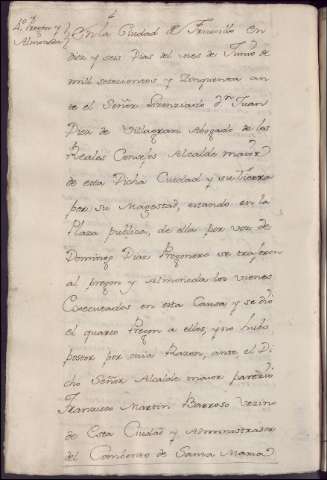 4º Pregon y
Almoneda
En la Ciudad de Truxillo En
diez y seis Dias del mes de Junio de
mill setecientos y Zinquenta an
te el Señor Lizenziado Dn Juan
Diaz de Villagran Abogado de los
Reales Consejos Alcalde maior
de esta Dicha Ciudad y su tierra
por su Magestad, estando en la
Plaza publica, de ella por voz de
Domingo Diaz Pregonero se trageron
al pregon y Almoneda los vienes
Executados en esta Causa y se dio
el quarto Pregon a ellos, y no hubo
postor por cuia Razon, ante el Di
cho Señor Alcalde maior parezio
Francisco Martin Barroso Vezin
de Esta Ciudad y Administrador
del Combento de Santa Maria